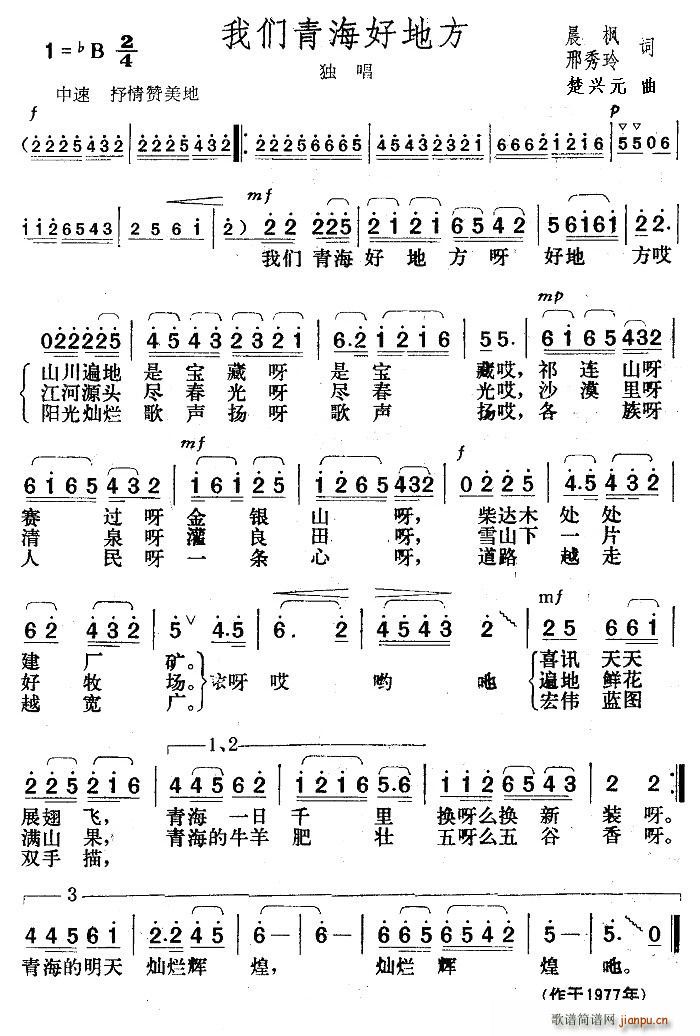 我们青海好地方
独唱
晨枫 词
邢秀玲
楚兴元 曲
1=♭B 2/4
中速 抒情赞美地
f
p
(2225432 2225432 22256665 43452321 666212116 5506
11126543 2561 2) 22 225 2121 6542 56161 22.
mf
我们 青海 好地方呀 好地 方哎
mp
022225 4543 2321 6.2 1216 55. 6165 432
山川遍地 是宝藏呀 是宝 藏哎，祁连山呀
江河源头 尽春光呀 尽春 光哎，沙漠里呀
阳光灿烂 歌声扬呀 歌声 扬哎，各族呀
mf
f
6165 432 161 25 1265 432 0225 4.5 432
赛过呀金银山呀，柴达木处处
清泉呀灌良田呀，雪山下一片
人民呀一条心呀，道路越走
mf
62 432 5 4.5 6. 2 4543 2 25 661
建厂矿。 哝呀 哎 哟 吔 喜讯天天
好牧场。 遍地鲜花
越宽广。 宏伟蓝图
1、2
225 216 4456 2421 1216 5.6 112 6543 2 2
展翅飞，青海一日千里换呀么换新装呀。
满山果，青海的牛羊肥壮五呀么五谷香呀。
双手描，
3
44561 2.2 45 6— 6— 665 6542 5— 5. 0
青海的明天灿烂辉煌，灿烂辉煌吔。
(作于1977年)
歌谱简谱网
jianpu.cn